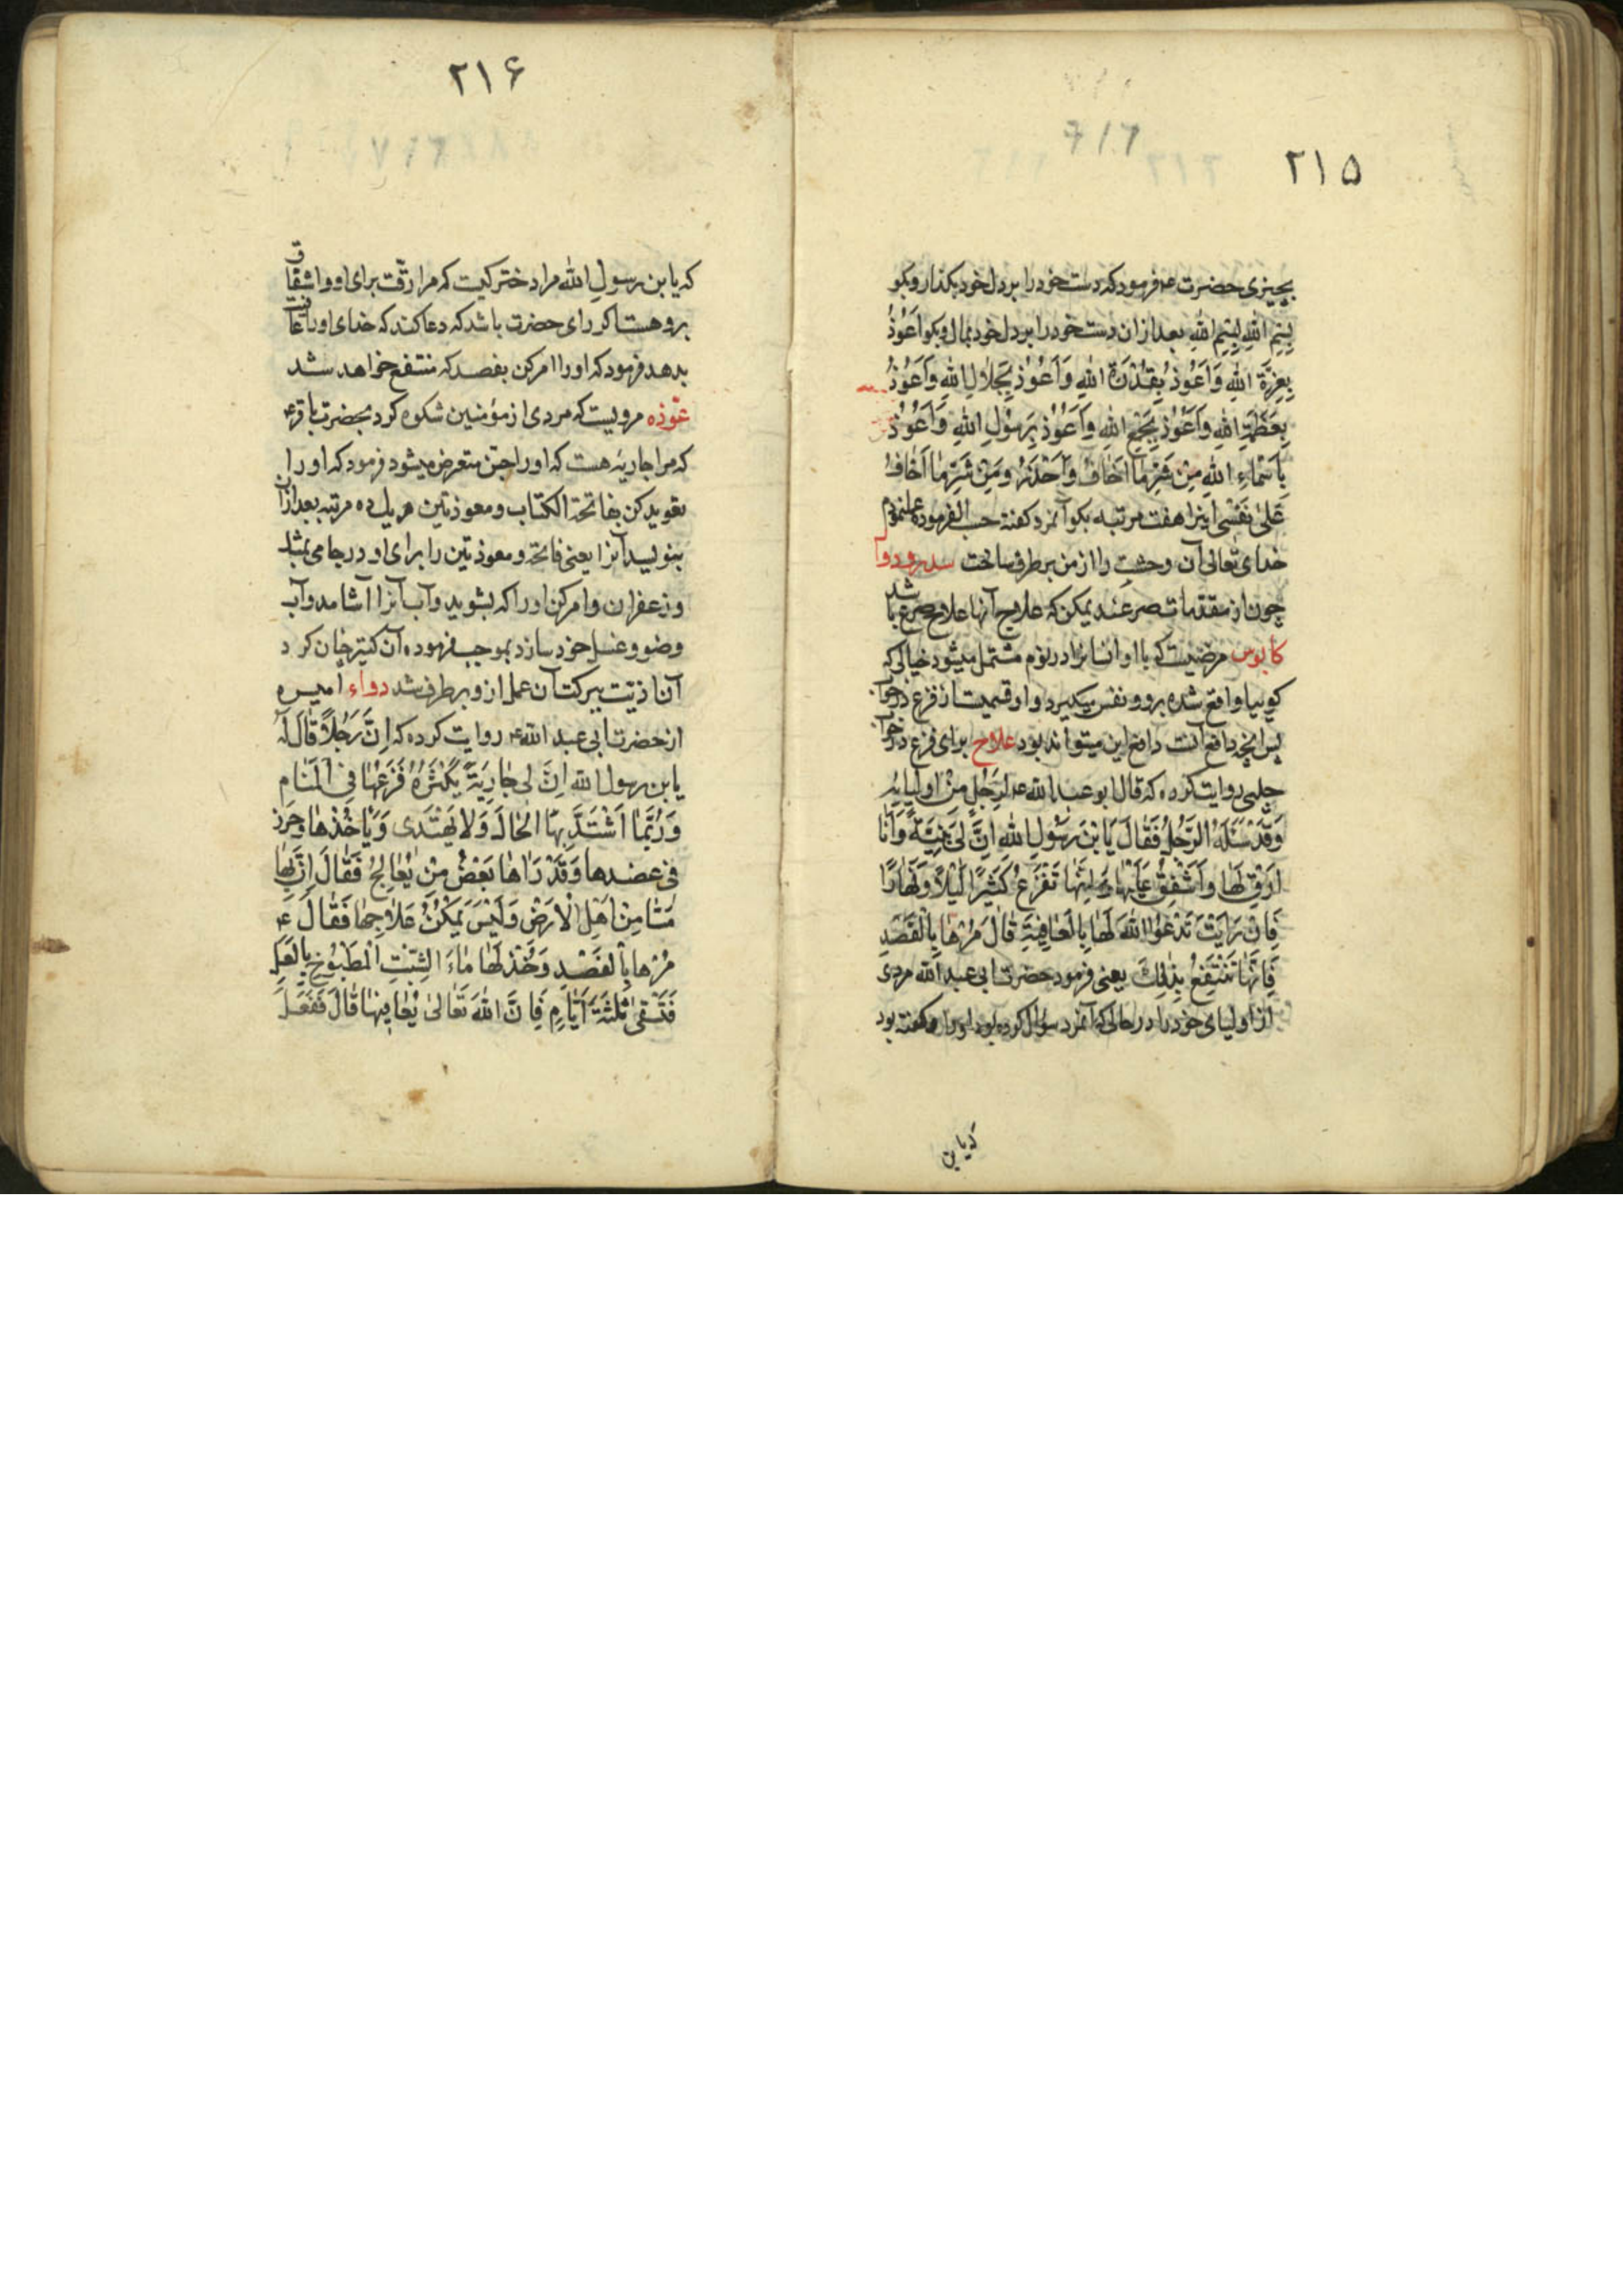 ۲۱۵
بچیزی حضرت ع فرمود که دست خود را بر دل خود بکذار و بکو
بِسْمِ اللهِ بِسْمِ اللهِ بعد از ان دست خود را بر دل خود بمال و بکو اَعُوْذُ
بِعِزَّةِ اللهِ وَاَعُوْذُ بِقُدْرَةِ اللهِ وَاَعُوْذُ بِجَلالِ اللهِ وَاَعُوْذُ
بِعَظَمَةِ اللهِ وَاَعُوْذُ بِجَمْعِ اللهِ وَاَعُوْذُ بِرَسُوْلِ اللهِ وَاَعُوْذُ
بِاَسْمَاءِ اللهِ مِنْ شَرِّ مَا اَخَافُ وَاَحْذَرُ وَمِنْ شَرِّ مَا اَخَافُ
عَلٰى نَفْسِى اینرا هفت مرتبه بکو آنمرد کفته حسب الفرموده عمل نمودم
خدای تعالی آن وحشت را از من برطرف ساخت سدر و دوا
چون از مقدمات صرعند یمکن که علاج آنها علاج صرع باشد
کابوس مرضیست که با او انسانرا در نوم مشتمل میشود خیالی که
کوییا واقع شده برو و نفس میکیرد و او قسمیست از فزع در خواب
پس انچه دافع آنست دافع این میتواند بود علاج برای فزع در خواب
حلبی روایت کرده که قال ابو عبد الله ع لِرَجُلٍ مِنْ اَوْلِیَائِهِ
وَقَدْ سَئَلَهُ الرَّجُلُ فَقَالَ یَا بْنَ رَسُوْلِ اللهِ اِنَّ لِیْ بُنَیَّةً وَاَنَا
اَرِقُّ لَهَا وَاُشْفِقُ عَلَیْهَا وَاِنَّهَا تَفْزَعُ کَثِیْرًا لَیْلاً وَنَهَارًا
فَاِنْ رَاَیْتَ تَدْعُوا اللهَ لَهَا بِالْعَافِیَةِ قَالَ مُرْهَا بِالْفَصْدِ
فَاِنَّهَا تَنْتَفِعُ بِذٰلِكَ یعنی فرمود حضرت ابی عبد الله مردی
از اولیای خود را در حالی که آنمرد سؤال کرده بود او را و کفته بود
که یا بن
۲۱۶
که یا بن رسول الله مرا دخترکیست که مرا رقّت برای او و اشفاق
برو هست اکر رای حضرت باشد که دعا کند که خدای او را عافیت
بدهد فرمود که او را امر کن بفصد که منتفع خواهد شد
عوذه مرویست که مردی از مؤمنین شکوه کرد بحضرت باقر ع
که مرا جاریهٔ هست که او را جن متعرض میشود فرمود که او را
تعوید کن بفاتحة الکتاب و معوذتین هر یك ده مرتبه بعد ازان
بنویسد آنرا یعنی فاتحه و معوذتین را برای او در جامی بمشك
و زعفران و امر کن او را که بشوید و آب آنرا آشامد و آب
وضو و غسل خود سازد بموجب فرموده آن کنیز چنان کرد
آن اذیّت ببرکت آن عمل ازو برطرف شد دواء امیسره
از حضرت ابی عبد الله ع روایت کرده که اِنَّ رَجُلاً قَالَ لَهُ
یا بن رسول الله اِنَّ لى جَارِیَةً یَکْثُرُ فَزَعُهَا فِى الْمَنَامِ
وَرُبَّمَا اشْتَدَّ بِهَا الْحَالُ وَلاَ تَهْتَدى وَیَاْخُذُهَا حَرَزٌ
فى عضدها وَقَدْ رَاٰهَا بَعْضُ مَنْ یُعَالِجُ فَقَالَ اِنَّ بِهَا
مَسًّا مِنْ اَهْلِ الْاَرْضِ وَلَیْسَ یُمْکِنُ عَلاَجُهَا فَقَالَ ع
مُرْهَا بِالْفَصْدِ وَخُذْ لَهَا مَاءَ الشِّبِتِ الْمَطْبُوْخِ بِالْعَسَلِ
فَتُسْقٰى ثَلٰثَةَ اَیَّامٍ فَاِنَّ اللهَ تَعَالٰى یُعَافِیْهَا قَالَ فَفَعَلَ